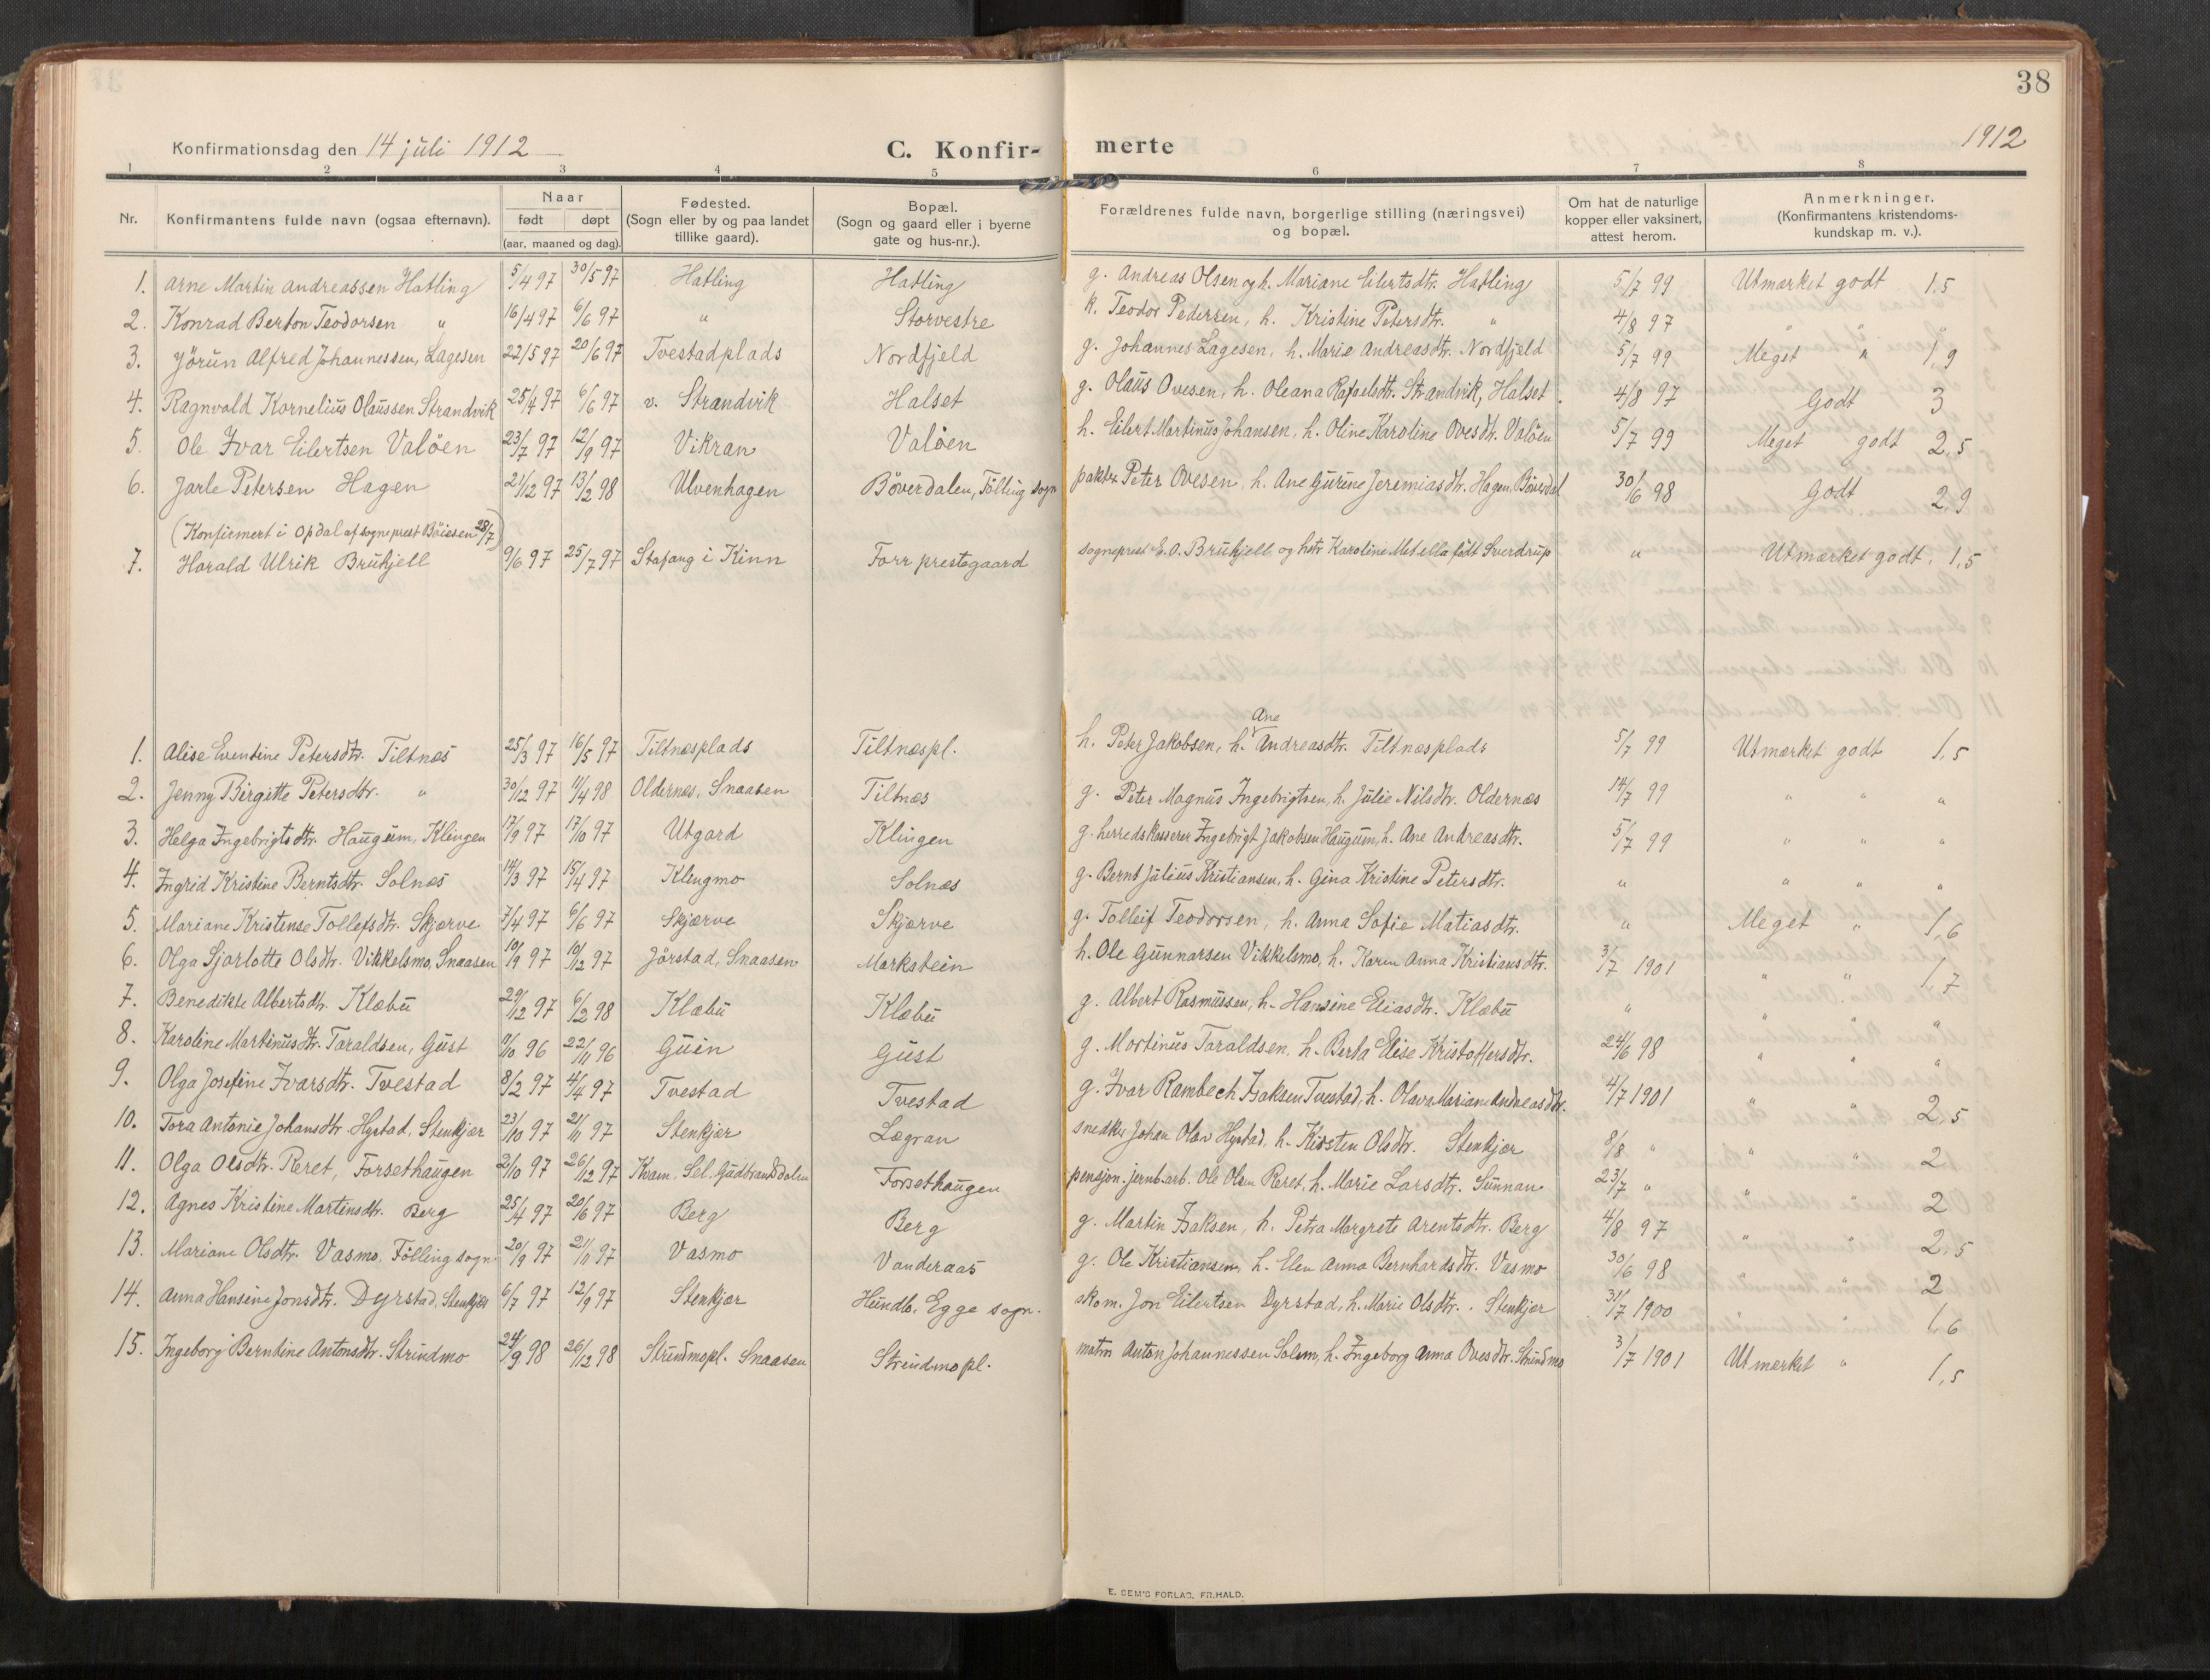 38
Konfirmationsdag den 14 juli 1912
C. Konfir-
merte
1912
1 2 3 4 5 6 7 8
Nr. Konfirmantens fulde navn (ogsaa efternavn). Naar født døpt (aar, maaned og dag). Fødested. (Sogn eller by og paa landet tillike gaard). Bopæl. (Sogn og gaard eller i byerne gate og hus-nr.). Forældrenes fulde navn, borgerlige stilling (næringsvei) og bopæl. Om hat de naturlige kopper eller vaksinert, attest herom. Anmerkninger. (Konfirmantens kristendoms- kundskap m. v.).
1. Arne Martin Andreassen Hatling 5/4 97 30/5 97 Hatling Hatling g. Andreas Olsen og h. Mariane Eilertsdtr. Hatling 5/7 99 Utmærket godt 1,5
2. Konrad Berton Teodorsen " 16/4 97 6/6 97 " Storvestre k. Teodor Pedersen, h. Kristine Petersdtr. " 4/8 97 " " "
3. Jörun Alfred Johannessen, Lagesen 22/5 97 20/6 97 Tvestadplads Nordfjeld g. Johannes Lagesen, h. Marie Andreasdtr. Nordfjeld 5/7 99 Meget " 1,9
4. Ragnvald Kornelius Olaussen Strandvik 25/4 97 6/6 97 v. Strandvik Halset g. Olaus Ovesen, h. Oleana Rafaelsdtr. Strandvik, Halset. 4/8 97 Godt 3
5. Ole Ivar Eilertsen Valøen 23/7 97 12/9 97 Vikran Valøen h. Eilert Martinus Johansen, h. Oline Karoline Ovesdtr. Valøen 5/7 99 Meget godt 2,5
6. Jarle Petersen Hagen 21/12 97 13/2 98 Ulvenhagen Bøverdalen, Følling sogn pakter Peter Ovesen, h. Ane Gurine Jeremiasdtr. Hagen, Bøverdal 30/6 98 Godt 2,9
(Konfirmert i Opdal af sogneprest Böiesen 28/7)
7. Harald Ulrik Brukjell 9/6 97 25/7 97 Stafang i Kinn Forr prestegaard sogneprest E.O. Brukjell og hstr Karoline Metella født Sverdrup " Utmærket godt. 1,5
1. Alise Eventine Petersdtr. Tiltnes 25/3 97 16/5 97 Tiltnesplads Tiltnespl. h. Peter Jakobsen, h. Ane Andreasdtr. Tiltnesplads 5/7 99 Utmærket godt 1,5
2. Jenny Birgitte Petersdtr. " 30/12 97 11/4 98 Oldernes, Snaasen Tiltnes g. Peter Magnus Ingebrigtsen, h. Julie Nilsdtr. Oldernæs 14/7 99 " " "
3. Helga Ingebrigtsdtr. Haugum, Klingen 17/9 97 17/10 97 Utgard Klingen g. herredskasserer Ingebrigt Jakobsen Haugum, h. Ane Andreasdtr. 5/7 99 " " "
4. Ingrid Kristine Berntsdtr. Solnes 14/3 97 15/4 97 Klingmo Solnes g. Bernt Julius Kristiansen, h. Gina Kristine Petersdtr. " " " "
5. Mariane Kristense Tollefsdtr. Skjærve 7/4 97 6/6 97 Skjærve Skjærve g. Tolleif Teodorsen, h. Anna Sofie Matiasdtr. " Meget " 1,6
6. Olga Sjarlotte Olsdtr. Vikkelsmo, Snaasen 10/9 97 19/12 97 Jørstad, Snaasen Markstein h. Ole Gunnarsen Vikkelsmo, h. Karen Anna Kristiansdtr. 3/7 1901 " " 1,7
7. Benedikte Albertsdtr. Klæbu 29/12 97 6/2 98 Klæbu Klæbu g. Albert Rasmussen, h. Hansine Eliasdtr. Klæbu " " " "
8. Karoline Martinusdtr. Taraldsen, Gust 11/10 96 22/11 96 Guin Gust g. Martinus Taraldsen, h. Berta Elise Kristoffersdtr. 24/6 98 " " "
9. Olga Josefine Ivarsdtr. Tvestad 8/2 97 4/4 97 Tvestad Tvestad g. Ivar Rambech Isaksen Tvestad, h. Olava Mariane Andreasdtr. 4/7 1901 " " 2,5
10. Tora Antonie Johansdtr. Hystad, Stenkjær 23/10 97 21/11 97 Stenkjær Lægran snedker Johan Olav Hystad, h. Kirsten Olsdtr. Stenkjær 8/8 " " " 2
11. Olga Olsdtr. Reret, Forsethaugen 2/10 97 26/12 97 Kvam, Sel. Gudbrandsdalen Forsethaugen pensjon. jernb.arb. Ole Olsen Reret, h. Marie Larsdtr. Sunnan 23/7 " " " 2
12. Agnes Kristine Martensdtr. Berg 25/4 97 20/6 97 Berg Berg g. Martin Isaksen, h. Petra Margrete Arentsdtr. Berg 4/8 97 " " 2,5
13. Mariane Olsdtr. Vasmo, Følling sogn 20/9 97 21/11 97 Vasmo Vanderaas g. Ole Kristiansen, h. Elen Anna Bernhardsdtr. Vasmo 30/6 98 " " 2
14. Anna Hansine Jonsdtr. Dyrstad, Stenkjær 6/7 97 12/9 97 Stenkjær Hundb., Egge sogn. skom. Jon Eilertsen Dyrstad, h. Marie Olsdtr. Stenkjær 31/7 1900 " " 1,6
15. Ingeborg Berntine Antonsdtr. Strindmo 24/9 98 26/12 98 Strindmopl. Snaasen Strindmopl. matm Anton Johannessen Solem, h. Ingeborg Anna Ovesdtr. Strindmo 3/7 1901 Utmærket " 1,5
E. SEM'S FORLAG, FR.HALD.